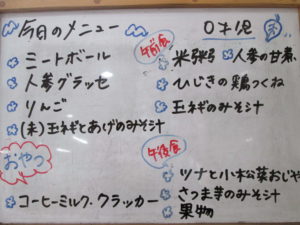 今日のメニュー
ミートボール
人参グラッセ
りんご
(未)玉ネギとあげのみそ汁
おやつ
コーヒーミルク、クラッカー
0才児
午前食
米粥 人参の甘煮
ひじきの鶏つくね
玉ネギのみそ汁
午後食
ツナと小松菜おじや
さつま芋のみそ汁
果物